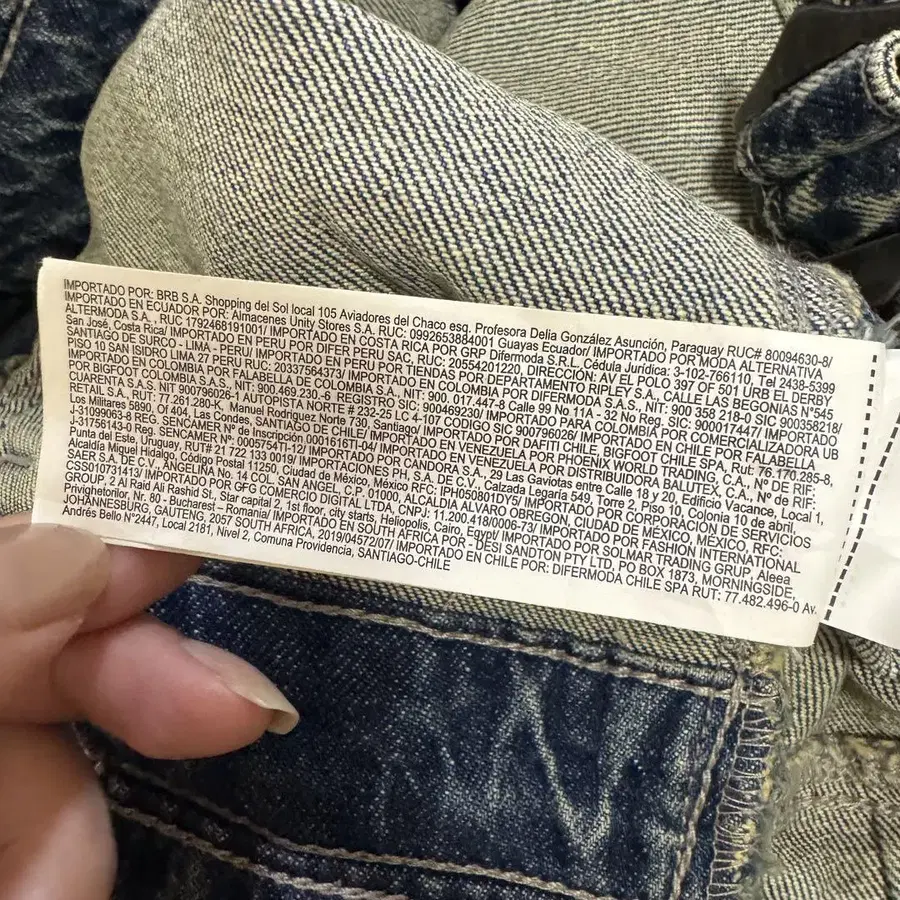 IMPORTADO POR: BRB S.A. Shopping del Sol local 105 Aviadores del Chaco esq. Profesora Delia González Asunción, Paraguay RUC# 80094630-8/
IMPORTADO EN ECUADOR POR: Almacenes Unity Stores S.A. RUC: 0992653884001 Guayas Ecuador/ IMPORTADO POR MODA ALTERNATIVA
ALTERMODA S.A., RUC 1792468191001/ IMPORTADO EN COSTA RICA POR GRP Difermoda S.R.L. Cédula Jurídica: 3-102-766110, Tel 2438-5399
San José, Costa Rica/ IMPORTADO EN PERU POR DIFER PERU SAC, RUC: 20554201220, DIRECCIÓN: AV EL POLO 397 OF 501 URB EL DERBY
SANTIAGO DE SURCO - LIMA - PERU/ IMPORTADO EN PERU POR TIENDAS POR DEPARTAMENTO RIPLEY S.A., CALLE LAS BEGONIAS N°545
PISO 10 SAN ISIDRO LIMA 27 PERU RUC: 20337564373/ IMPORTADO EN COLOMBIA POR DIFERMODA S.A.S., NIT: 900 358 218-0 SIC 900358218/
IMPORTADO EN COLOMBIA POR FALABELLA DE COLOMBIA S.A., NIT: 900. 017.447-8 Calle 99 No 11A - 32 No Reg. SIC: 900017447/ IMPORTADO
POR BIGFOOT COLOMBIA S.A.S., NIT: 900.469.230.-6 REGISTRO SIC: 900469230/ IMPORTADO PARA COLOMBIA POR COMERCIALIZADORA UB
CUARENTA S.A.S. NIT 900796026-1 AUTOPISTA NORTE # 232-25 LC 4-107 CODIGO SIC 900796026/ IMPORTADO EN CHILE POR FALABELLA
RETAIL S.A., RUT: 77.261.280-K, Manuel Rodríguez Norte 730, Santiago/ IMPORTADO POR DAFITI CHILE, BIGFOOT CHILE SPA, Rut: 76.770.285-8,
Los Militares 5890, Of 404, Las Condes, SANTIAGO DE CHILE/ IMPORTADO EN VENEZUELA POR PHOENIX WORLD TRADING, C.A., N° de RIF:
J-31099065-8 REG. SENCAMER N° de Inscripción 000161617-04/ IMPORTADO EN VENEZUELA POR DISTRIBUIDORA BALLUTEX, C.A., N° de RIF:
J-31756143-0 Reg. SENCAMER N°: 00057071-12/ IMPORTADO POR PANDORA S.A., Calle 29 Las Gaviotas entre Calle 18 y 20, Edificio Vacance, Local 1,
Punta del Este, Uruguay, RUT# 21 722 133 0019/ IMPORTACIONES PH, S.A. DE C.V., Calzada Legaría 549, Torre 2, Piso 10, Colonia 10 de abril,
Alcaldía Miguel Hidalgo, Código Postal 11250, Ciudad de México, México RFC: IPH050801DY5/ IMPORTADO POR CORPORACIÓN DE SERVICIOS
SAER S.A. DE C.V., ANGELINA No. 14 COL. SAN ANGEL, C.P. 01000, ALCALDIA ALVARO OBREGON, CIUDAD DE MÉXICO, MÉXICO, RFC:
CSS0107314T3/ IMPORTADO POR GFG COMERCIO DIGITAL LTDA, CNPJ: 11.200.418/0006-73/ IMPORTADO POR FASHION INTERNATIONAL
GROUP, 2 Al Raid Al Rashid St., Star capital 2, 1st floor, city starts, Heliopolis, Cairo, Egypt/ IMPORTADO POR SOLMAR TRADING GRUP, Aleea
Privighetorilor, Nr. 80 - Bucharest – Romania/ IMPORTADO EN SOUTH AFRICA POR : DESI SANDTON PTY LTD, PO BOX 1873, MORNINGSIDE,
JOHANNESBURG, GAUTENG, 2057 SOUTH AFRICA, 2019/045720/07/ IMPORTADO EN CHILE POR: DIFERMODA CHILE SPA RUT: 77.482.496-0 Av.
Andrés Bello N°2447, Local 2181, Nivel 2, Comuna Providencia, SANTIAGO-CHILE